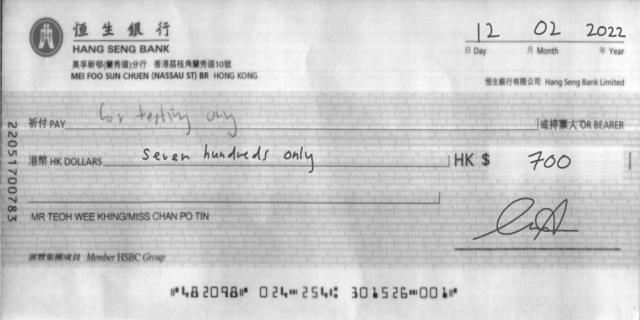 恒生銀行
HANG SENG BANK
美孚新邨(蘭秀道)分行 香港荔枝角蘭秀道10號
MEI FOO SUN CHUEN (NASSAU ST) BR HONG KONG
12 02 2022
日 Day 月 Month 年 Year
恒生銀行有限公司 Hang Seng Bank Limited
祈付 PAY for testing only 或持票人 OR BEARER
港幣 HK DOLLARS seven hundreds only HK $ 700
MR TEOH WEE KHING/MISS CHAN PO TIN
滙豐集團成員 Member HSBC Group
22051700783
⑈482098⑈ 024⑉254⑆ 301526⑉001⑈